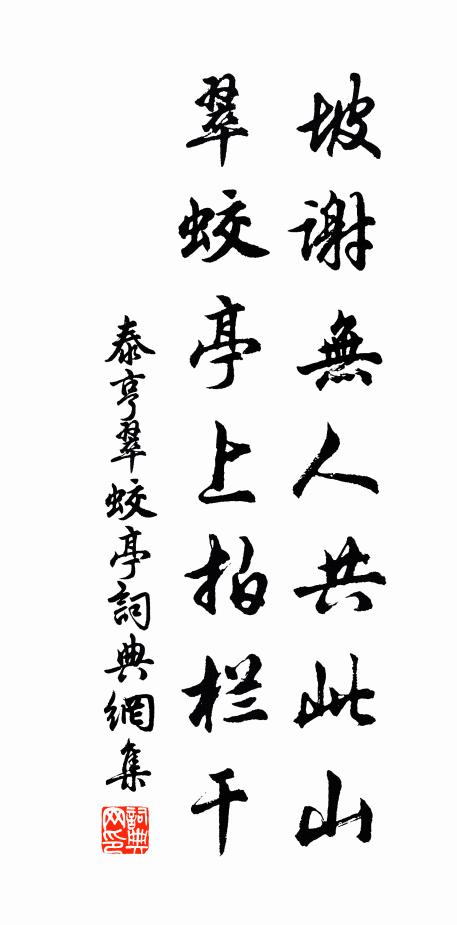 坡谢無人共此山
翠蛟亭上拍栏干
泰亨翠蛟亭詞典網集
詞典网印